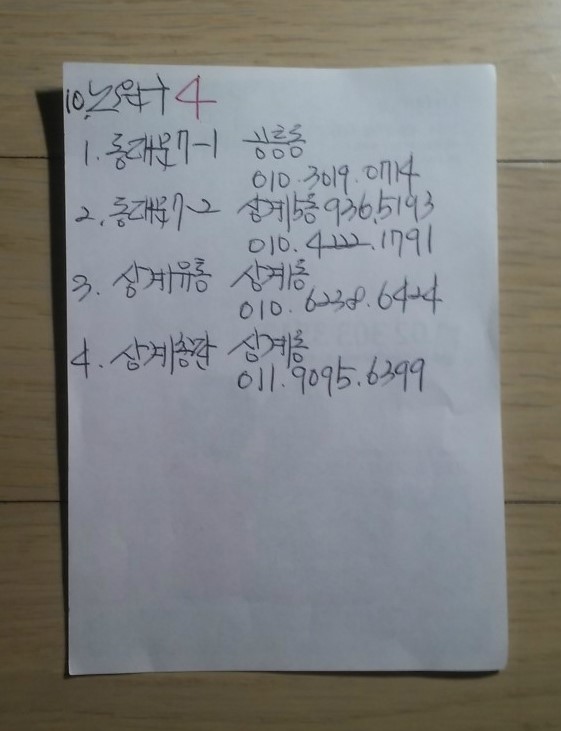 10. 노원구 4
1. 동대문7-1 공릉동
010.3019.0714
2. 동대문7-2 상계5동 936.5193
010.4222.1791
3. 상계유통 상계동
010.6238.6424
4. 상계총판 상계동
011.9095.6399